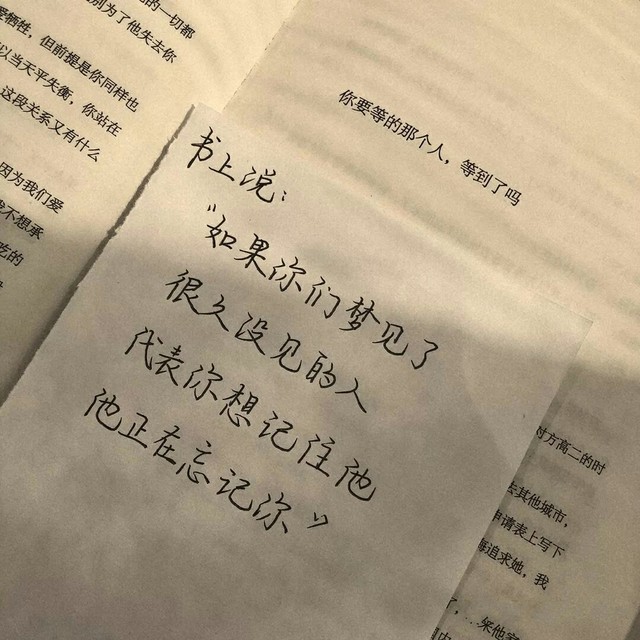 的一切都
别为了他失去你
爱牺牲,但前提是你同样也
以当天平失衡,你站在
这段关系又有什么
因为我们爱
不想承
吃的
你要等的那个人,等到了吗
书上说:
“如果你们梦见了
很久没见的人
代表你想记住他
他正在忘记你”
对方高二的时
去其他城市,
申请表上写下
追求她,我